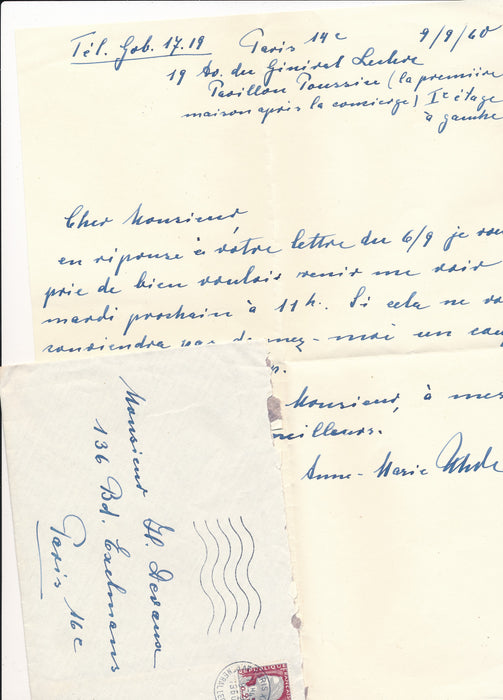 Tél. Gob. 17.19 Paris 14e 9/9/60
19 Av. du Général Leclerc
Pavillon Poussin (la première
maison après la concierge) Ier étage
à gauche
Cher Monsieur,
en réponse à vôtre lettre du 6/9 je vou
prie de bien vouloir venir me voir
mardi prochain à 11h. Si cela ne vo
conviendra pas donnez-moi un cou
Monsieur, à mes
meilleurs.
Anne-Marie Uhde
Monsieur H.
136 Bd. Exelmans
Paris 16e